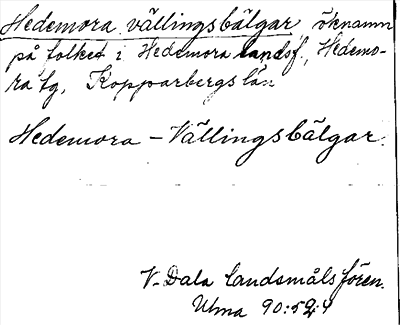 Hedemora vällingsbälgar öknamn
på folket i Hedemora landsf., Hedemo-
ra tg, Kopparbergs län
Hedemora – Vällingsbälgar.
V. Dala landsmålsfören.
Ulma 90:52:4